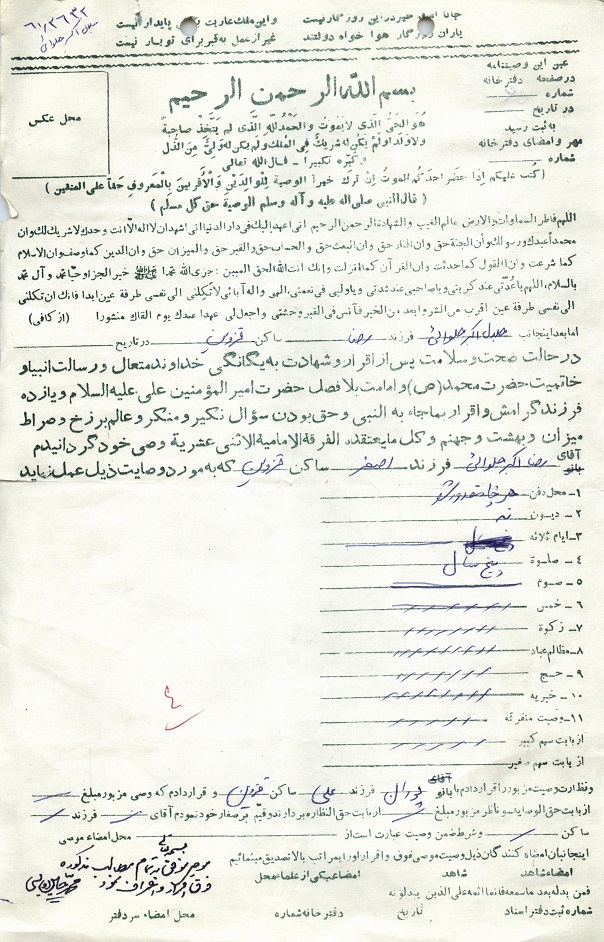 جانا امید خیر در این روزگار نیست
یاران روزگار هوا خواه دولتند
و این ملک عاریت به کس پایدار نیست
غیر از عمل به قبر برای تو یار نیست
عین این وصیتنامه
در صفحه دفترخانه
شماره
در تاریخ
به ثبت رسید
مهر و امضای دفترخانه
شماره
محل عکس
بسم الله الرحمن الرحیم
هو الحی الذی لا یموت والحمد لله الذی لم یتخذ صاحبة
ولا ولدا ولم یکن له شریک فی الملک ولم یکن له ولی من الذل
و کبره تکبیرا - قال الله تعالی
(کتب علیکم اذا حضر احدکم الموت ان ترک خیرا الوصیة للوالدین والاقربین بالمعروف حقا علی المتقین)
(قال النبی صلی اله علیه و آله وسلم الوصیة حق کل مسلم)
اللهم فاطر السماوات والارض عالم الغیب والشهادة الرحمن الرحیم انی اعهد الیک فی دار الدنیا انی اشهد ان لا اله الا انت وحدک لا شریک لک وان
محمدا عبدک ورسولک وان الجنة حق وان النار حق وان البعث حق والحساب حق والقبر حق والمیزان حق وان الدین کما وصف وان الاسلام
کما شرعت وان القول کما حدثت وان القرآن کما انزلت وانک انت الله الحق المبین : جزی الله محمدا خیر الجزاء وحیا محمد و آل محمد
بالسلام، اللهم یا عدتی عند کربتی ویا صاحبی عند شدتی ویا ولیی فی نعمتی، الهی واله آبائی لا تکلنی الی نفسی طرفة عین ابدا فانک ان تکلنی
الی نفسی طرفة عین اقرب من الشر وابعد من الخیر فآنس فی القبر وحشتی واجعل لی عهدا عندک یوم القاک منشورا (از کافی)
اما بعد اینجانب فرزند رضا ساکن قزوین در تاریخ
در حالت صحت و سلامت پس از اقرار و شهادت به یگانگی خداوند متعال و رسالت انبیا و
خاتمیت حضرت محمد (ص) و امامت بلافصل حضرت امیرالمؤمنین علی علیه السلام و یازده
فرزند گرامش و اقرار بما جاء به النبی و حق بودن سؤال نکیر و منکر و عالم برزخ و صراط
میزان و بهشت و جهنم و کل ما یعتقده الفرقة الامامیة الاثنی عشریة وصی خود گردانیدم
آقای بانو رضا اکبر حلوائی فرزند اصغر ساکن قزوین که به مورد وصایت ذیل عمل نماید
۱- محل دفن
۲- دیون نه
۳- ایام ثلاثه
۴- صلوة پنج سال
۵- صوم
۶- خمس
۷- زکوة
۸- مظالم عباد
۹- حج
۱۰- خیریه
۱۱- وصیت متفرقه
از بابت سهم کبیر
از بابت سهم صغیر
و نظارت وصیت مزبور را قرار دادم با آقای بانو پوران فرزند علی ساکن قزوین و قرار دادم که وصی مزبور مبلغ
از بابت حق الوصایه و ناظر مزبور مبلغ از بابت حق النظاره بردارند و قیم بر صغار خود نمودم آقای فرزند
ساکن و شرط ضمن وصیت عبارت است از محل امضاء موصی
اینجانبان امضاء کنندگان ذیل وصیت موصی فوق و اقرار او را بمراتب بالا تصدیق مینمائیم
امضاء شاهد شاهد امضاء یکی از علماء محل
فمن بدله بعد ما سمعه فانما اثمه علی الذین یبدلونه
شماره ثبت دفتر اسناد تاریخ دفترخانه شماره محل امضاء سردفتر